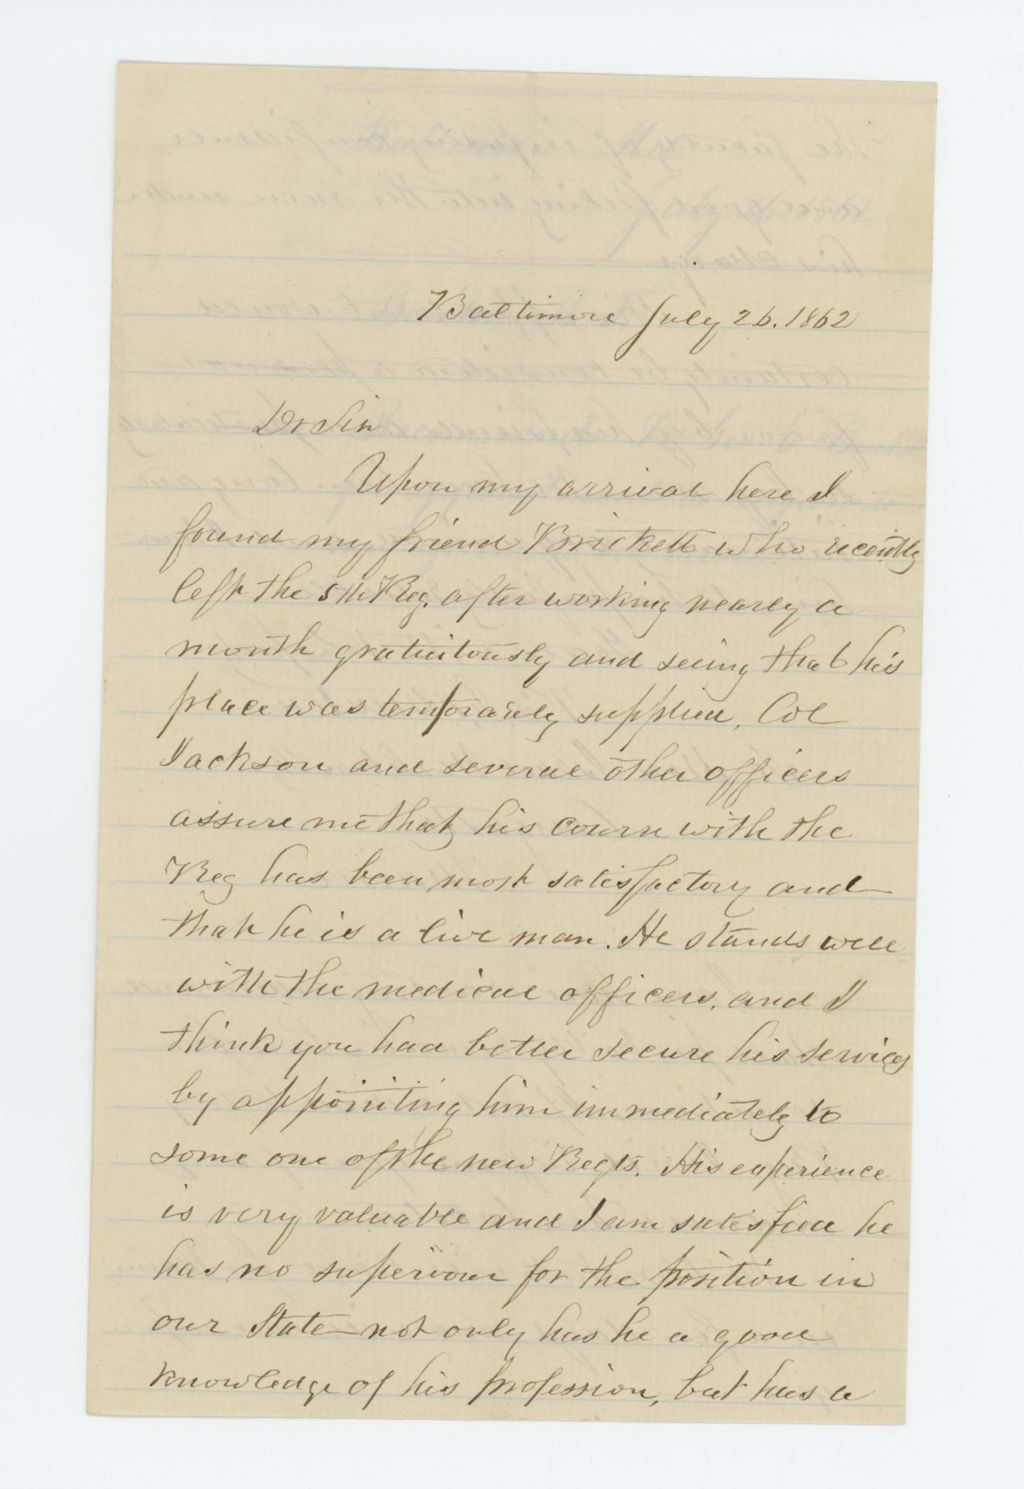 Baltimore July 26. 1862
Dr Sir
Upon my arrival here I
found my friend Brickett who recently
left the 5th Reg. after working nearly a
month gratuitously and seeing that his
place was temporarily supplied, Col
Jackson and several other officers
assure me that his course with the
Reg has been most satisfactory and
that he is a live man. He stands well
with the medical officers, and I
think you had better secure his services
by appointing him immediately to
some one of the new Regts. His experience
is very valuable and I am satisfied he
has no superiour for the position in
our State not only has he a good
knowledge of his profession, but has a